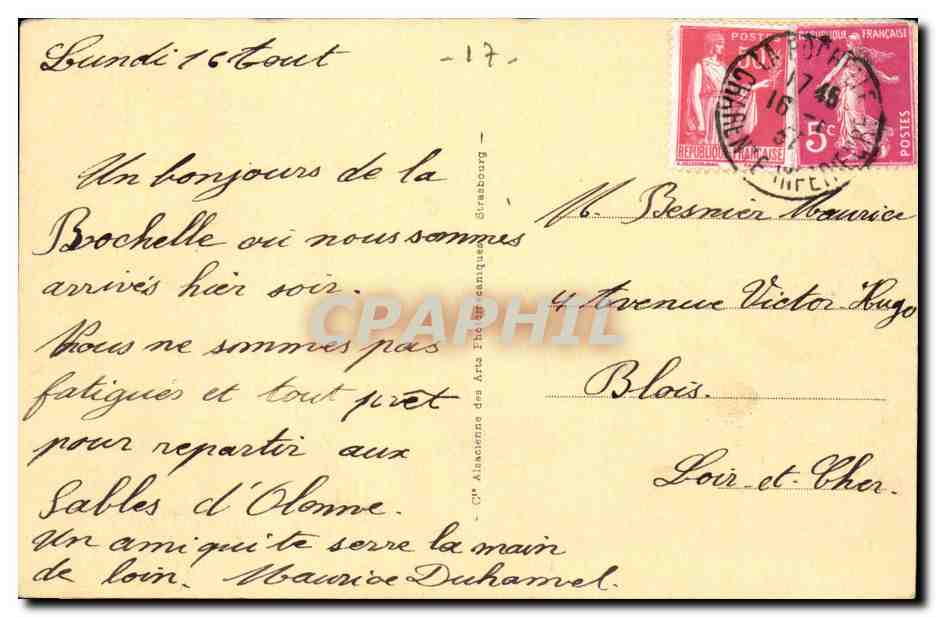 Lundi 16 Aout
- 17 -
Un bonjours de la
Rochelle où nous sommes
arrivés hier soir.
Nous ne sommes pas
fatigués et tout prêt
pour repartir aux
Sables d'Olonne.
Un ami qui te serre la main
de loin. Maurice Duhamel.
- Cie Alsacienne des Arts Photomécaniques, Strasbourg -
POSTES
50c
REPUBLIQUE FRANÇAISE
REPUBLIQUE FRANÇAISE
5c
POSTES
LA ROCHELLE
17 45
16
CHARENTE INFERIEURE
M. Besnier Maurice
4 Avenue Victor Hugo
Blois.
Loir-et-Cher.
CPAPHIL